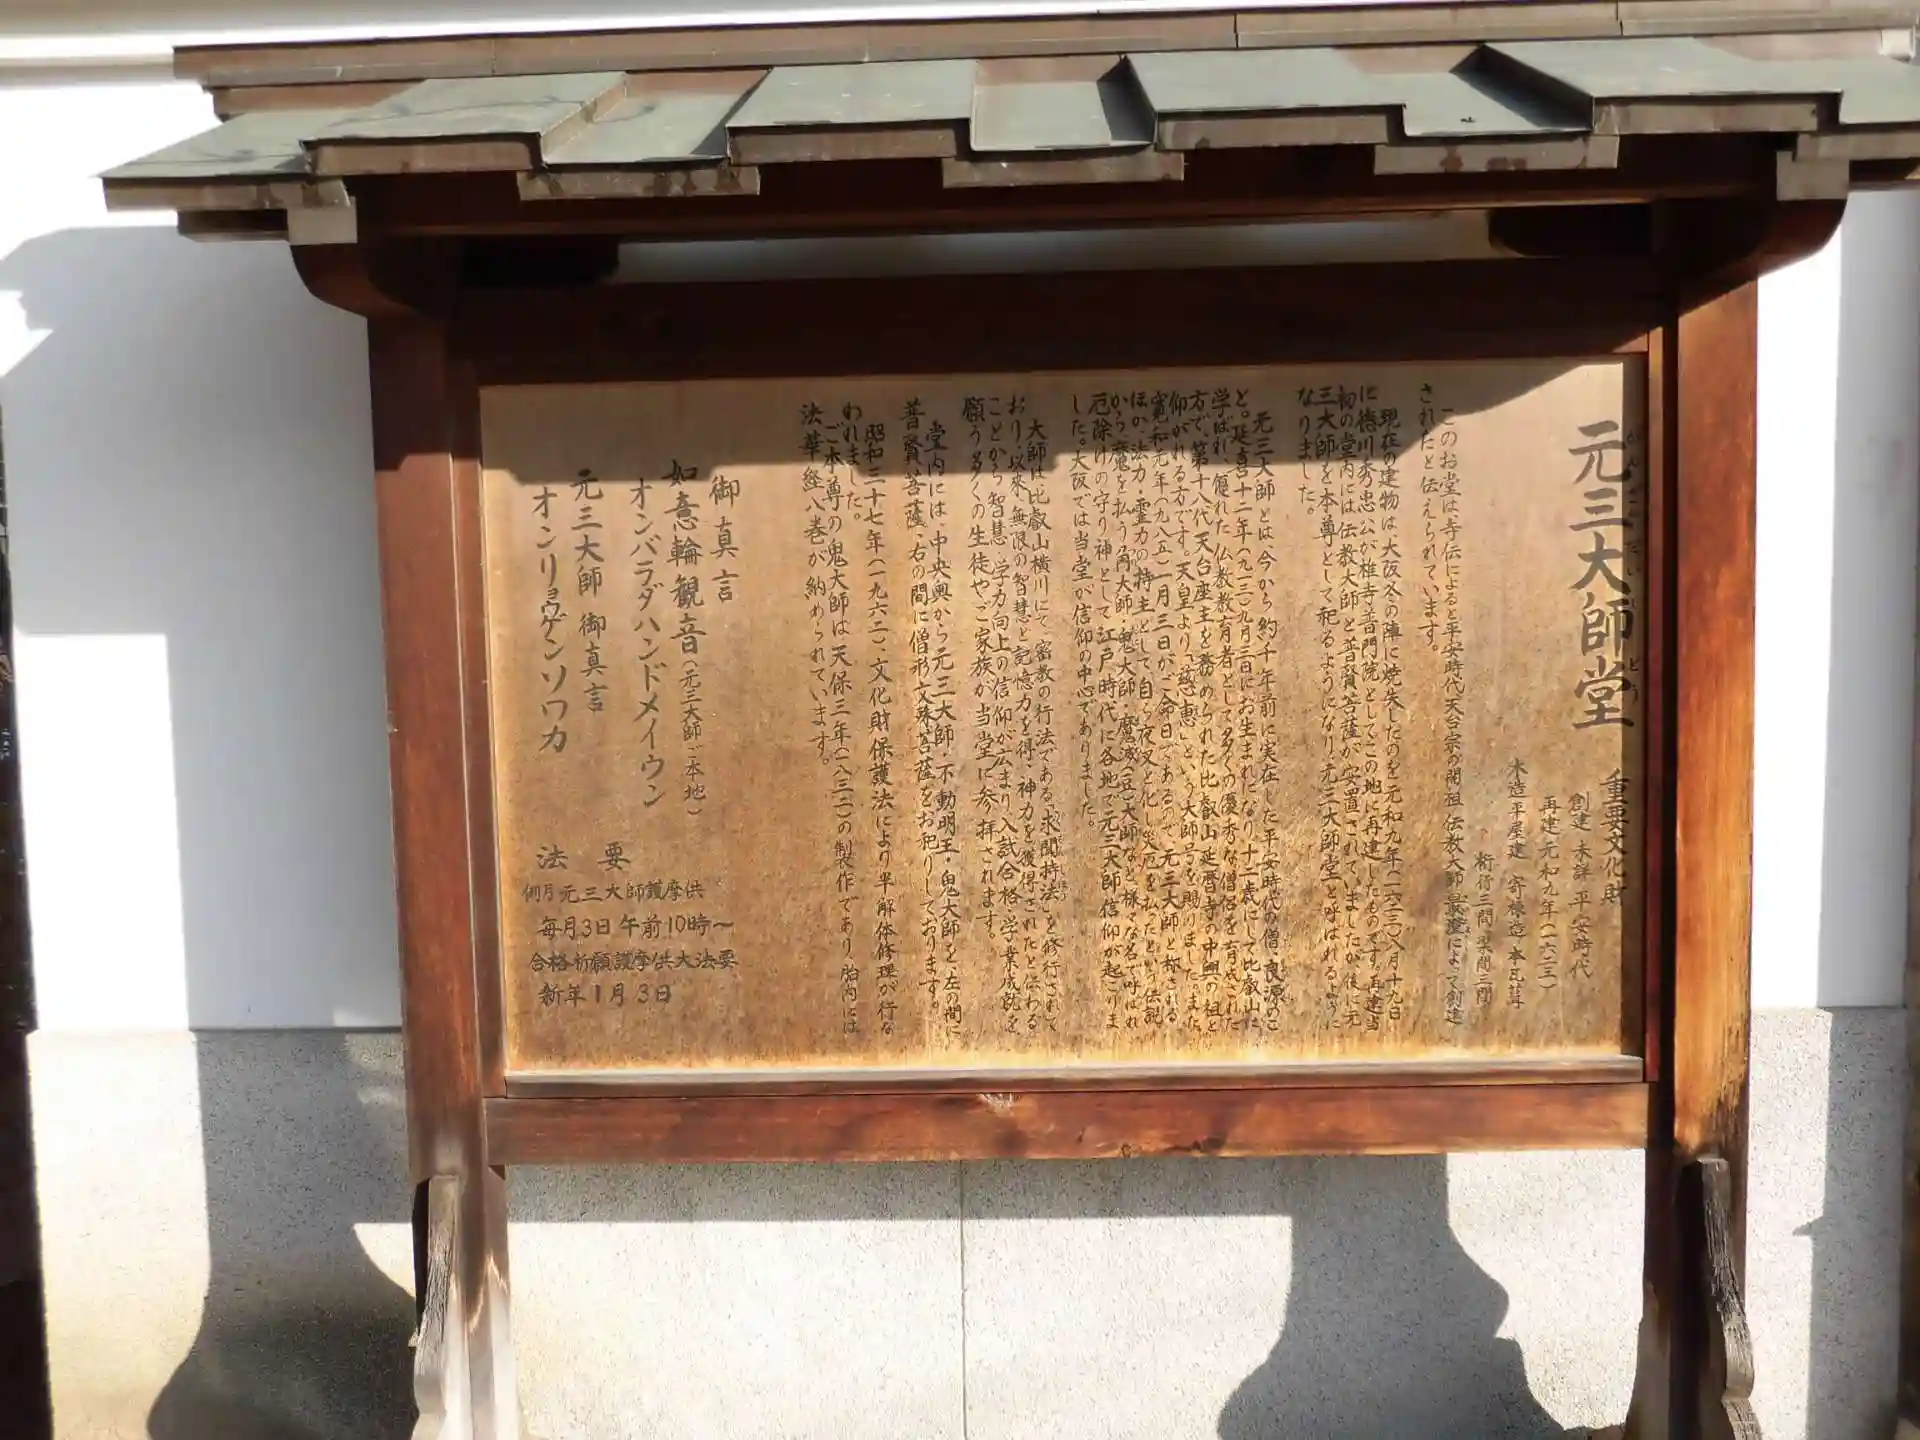 元三大師堂
がんさんだいしどう
重要文化財
創建 未詳 平安時代
再建 元和九年(一六二三)
木造平屋建 寄棟造 本瓦葺
桁行三間 梁間三間
このお堂は寺伝によると平安時代天台宗の開祖 伝教大師最澄によって創建
されたと伝えられています。
現在の建物は大阪冬の陣に焼失したのを元和九年(一六二三)八月十九日
に徳川秀忠公が椎寺普門院としてこの地に再建したものです。再建当
初の堂内には伝教大師と普賢菩薩が安置されていましたが後に元
三大師を本尊として祀るようになり、元三大師堂と呼ばれるように
なりました。
元三大師とは今から約千年前に実在した平安時代の僧、良源のこ
と。延喜十二年(九一二)九月三日にお生まれになり十二歳にして比叡山に
学ばれ、優れた仏教教育者として多くの優秀な僧侶を育成された
方で、第十八代天台座主を務められた比叡山延暦寺の中興の祖と
仰がれる方です。天皇より「慈恵」という大師号を賜りました。また、
寛和元年(九八五)一月三日がご命日であるので元三大師と称される
ほか、法力・霊力の持主として、自ら夜叉と化し災厄を払ったという伝説
から魔を払う角大師・鬼大師・魔滅(豆)大師など様々な名で呼ばれ
厄除けの守り神として江戸時代に各地で元三大師信仰が起こりま
した。大阪では当堂が信仰の中心でありました。
大師は比叡山横川にて密教の行法である「求聞持法」を修行されて
おり、以来無限の智慧と記憶力を得、神力を獲得されたと伝わる
ことから智慧・学力向上の信仰が広まり入試合格・学業成就を
願う多くの生徒やご家族が当堂に参拝されます。
堂内には、中央奥から元三大師・不動明王・鬼大師を、左の間に
普賢菩薩、右の間に僧形文殊菩薩をお祀りしております。
昭和三十七年(一九六二)、文化財保護法により半解体修理が行な
われました。
ご本尊の鬼大師は天保三年(一八三二)の製作であり胎内には
法華経八巻が納められています。
御真言
如意輪観音(元三大師ご本地)
オンバラダハンドメイウン
元三大師 御真言
オンリョウゲンソワカ
法要
例月元三大師護摩供
毎月3日午前10時〜
合格祈願護摩供大法要
新年1月3日